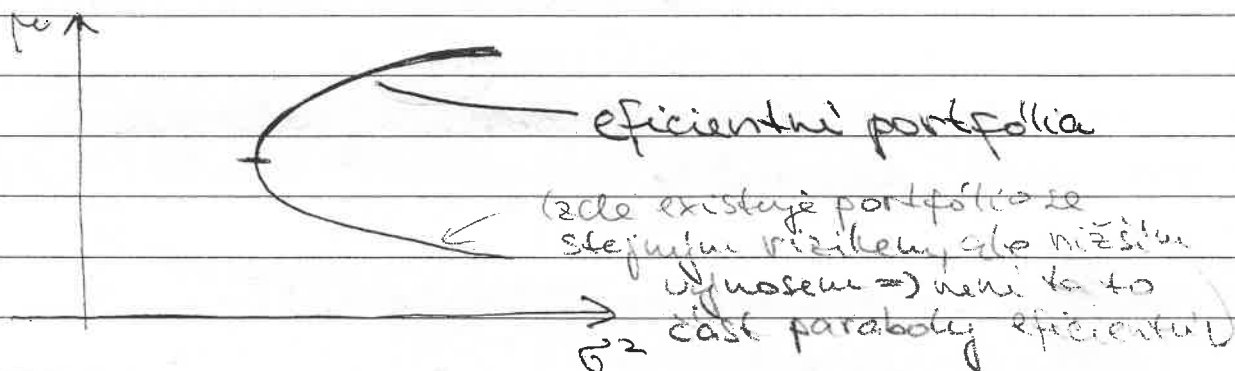 μ
eficientní portfólia
(zde existuje portfólio se
stejným rizikem, ale nižším
výnosem => není tato
část paraboly eficientní)
σ²